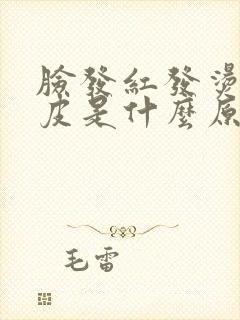 臉發紅發燙
皮是什麼原
毛雷